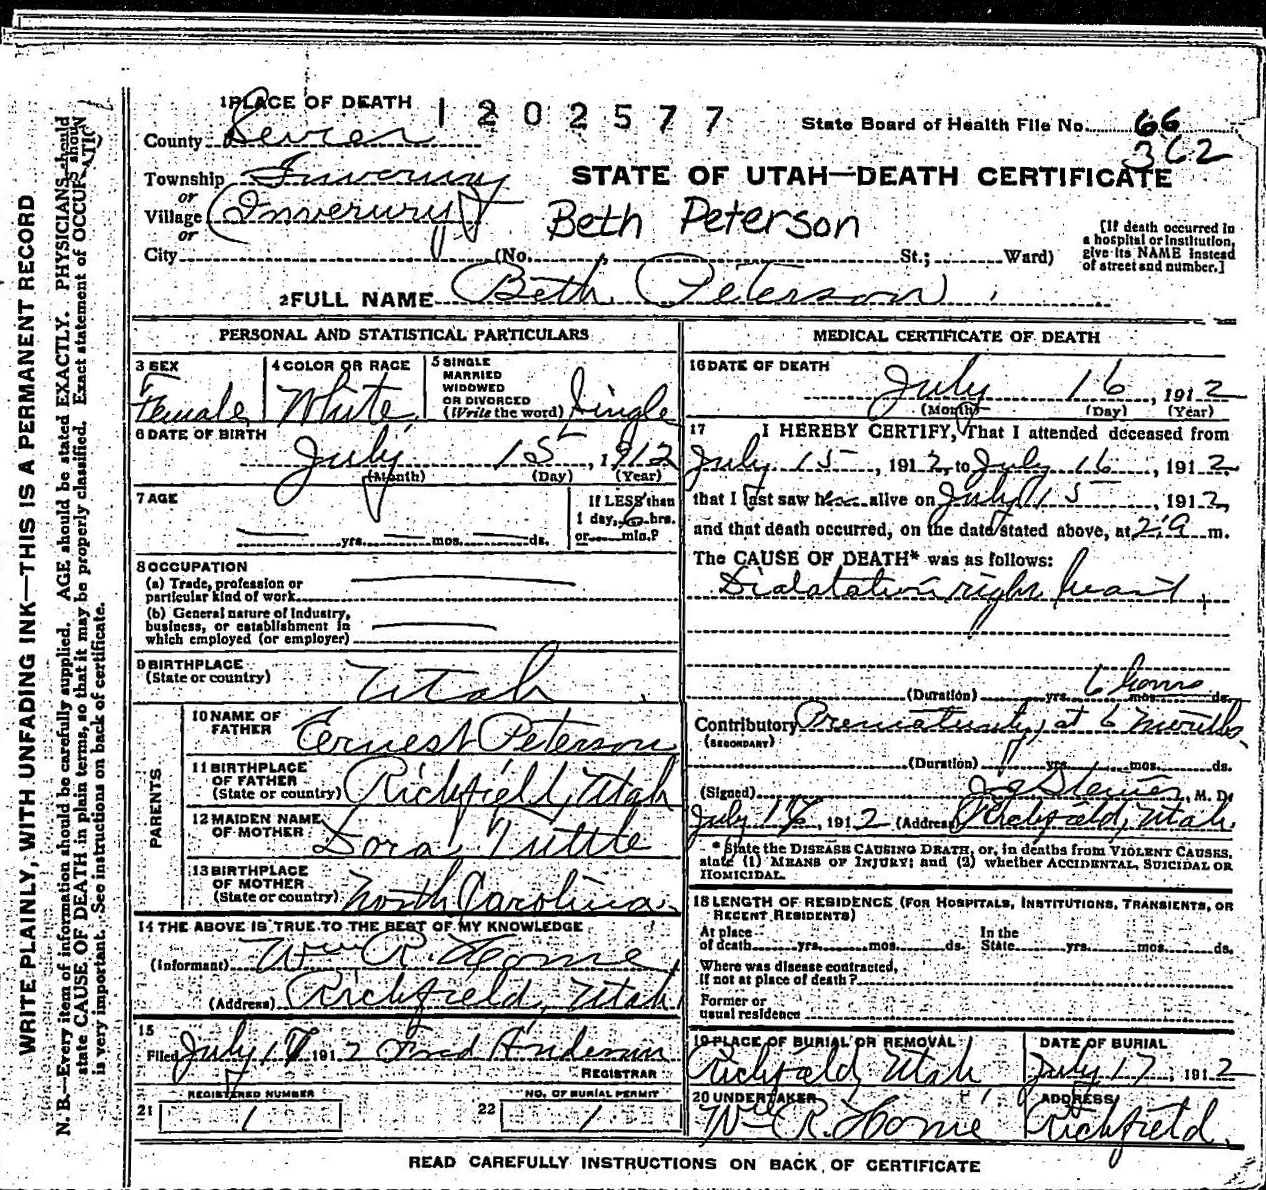 1 PLACE OF DEATH 1202577
State Board of Health File No. 66
362
County Sevier
Township Inverury
STATE OF UTAH—DEATH CERTIFICATE
or
Village (Inverury)
Beth Peterson
or
City (No. St.; Ward)
[If death occurred in
a hospital or institution,
give its NAME instead
of street and number.]
2 FULL NAME Beth Peterson
PERSONAL AND STATISTICAL PARTICULARS
3 SEX
Female
4 COLOR OR RACE
White
5 SINGLE
MARRIED
WIDOWED
OR DIVORCED
(Write the word) Single
6 DATE OF BIRTH
July 15, 1912
(Month) (Day) (Year)
7 AGE
yrs. mos. ds.
If LESS than
1 day, 6 hrs.
or min.?
8 OCCUPATION
(a) Trade, profession or
particular kind of work
(b) General nature of Industry,
business, or establishment in
which employed (or employer)
9 BIRTHPLACE
(State or country)
Utah
PARENTS
10 NAME OF
FATHER
Ernest Peterson
11 BIRTHPLACE
OF FATHER
(State or country) Richfield, Utah
12 MAIDEN NAME
OF MOTHER
Dora Tuttle
13 BIRTHPLACE
OF MOTHER
(State or country) North Carolina
14 THE ABOVE IS TRUE TO THE BEST OF MY KNOWLEDGE
(Informant) Wm R. Horne
(Address) Richfield, Utah
15
Filed July 17 1912 Fred Anderson
REGISTRAR
REGISTERED NUMBER
21 1
NO. OF BURIAL PERMIT
22 1
MEDICAL CERTIFICATE OF DEATH
16 DATE OF DEATH
July 16, 1912
(Month) (Day) (Year)
17 I HEREBY CERTIFY, That I attended deceased from
July 15, 1912, to July 16, 1912
that I last saw her alive on July 15, 1912,
and that death occurred, on the date stated above, at 2 a m.
The CAUSE OF DEATH* was as follows:
Dialatation right heart
(Duration) yrs. 6 hours mos. ds.
Contributory Prematurity, at 6 months
(SECONDARY)
(Duration) yrs. mos. ds.
(Signed) Steiner, M. D.
July 16, 1912 (Address) Richfield, Utah
* State the DISEASE CAUSING DEATH, or, in deaths from VIOLENT CAUSES,
state (1) MEANS OF INJURY; and (2) whether ACCIDENTAL, SUICIDAL OR
HOMICIDAL.
18 LENGTH OF RESIDENCE (FOR HOSPITALS, INSTITUTIONS, TRANSIENTS, OR
RECENT RESIDENTS)
At place
of death yrs. mos. ds.
In the
State yrs. mos. ds.
Where was disease contracted,
if not at place of death?
Former or
usual residence
19 PLACE OF BURIAL OR REMOVAL
Richfield, Utah
DATE OF BURIAL
July 17, 1912
20 UNDERTAKER
Wm R. Horne
ADDRESS
Richfield.
READ CAREFULLY INSTRUCTIONS ON BACK OF CERTIFICATE
WRITE PLAINLY, WITH UNFADING INK—THIS IS A PERMANENT RECORD
N. B.—Every item of information should be carefully supplied. AGE should be stated EXACTLY. PHYSICIANS should
state CAUSE OF DEATH in plain terms, so that it may be properly classified. Exact statement of OCCUPATION
is very important. See instructions on back of certificate.